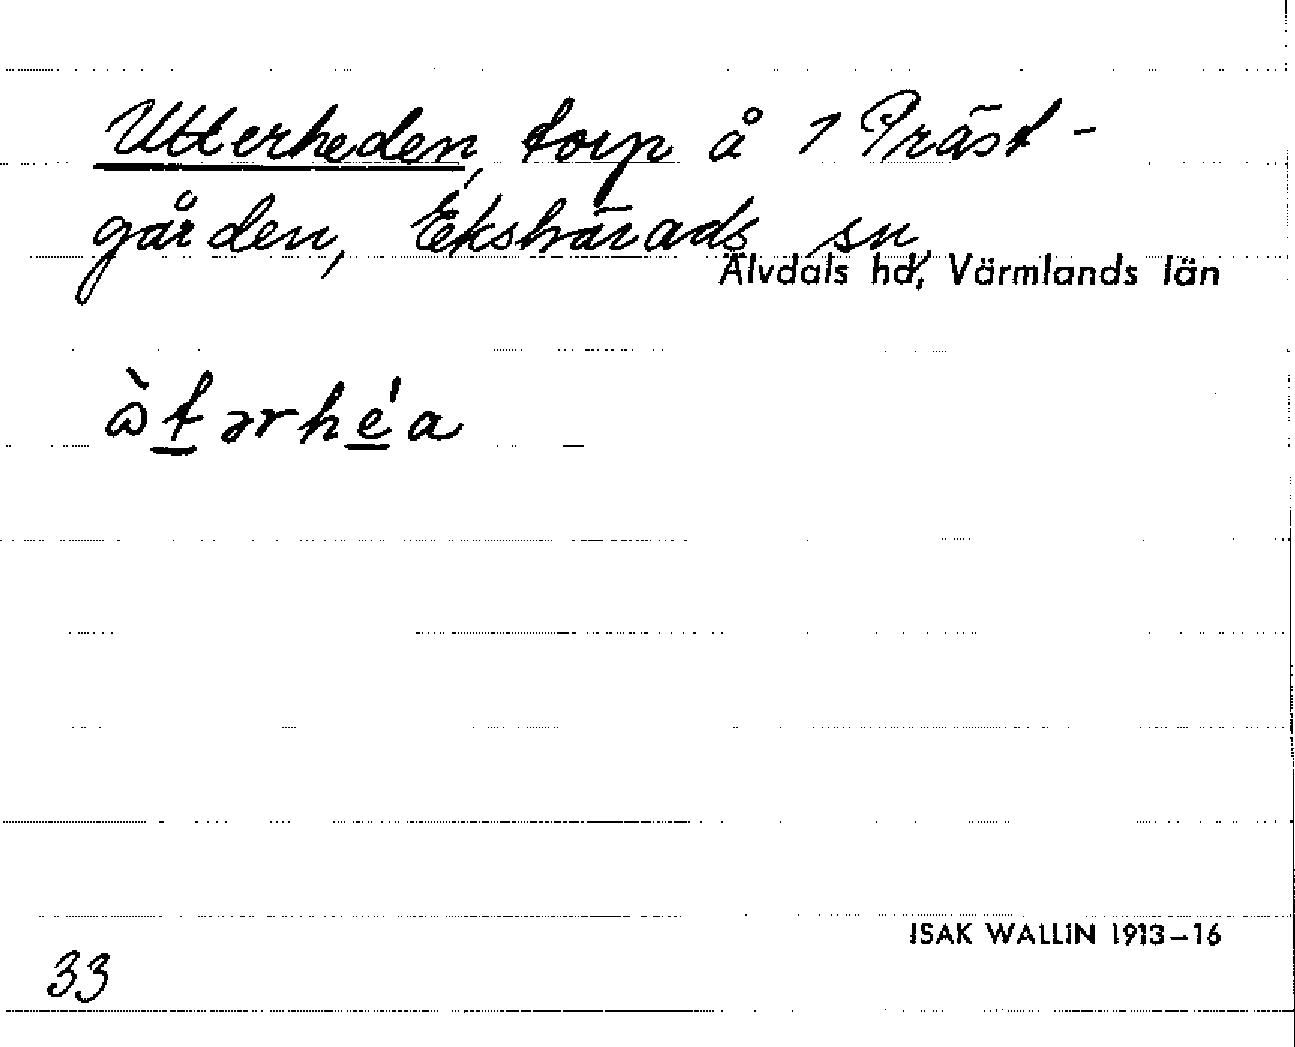 Utterheden, torp å 1 Präst-
gården, Ekshärads sn,
Älvdals hd, Värmlands län
ɷ̀tərhe̍a
ISAK WALLIN 1913–16
33